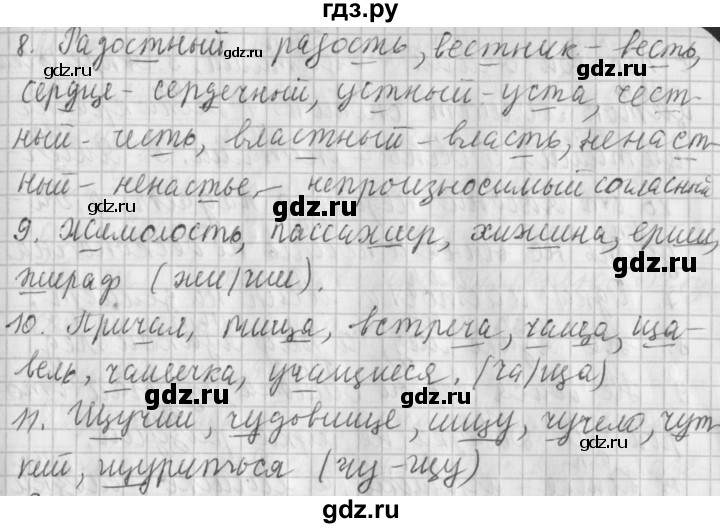 гдз.ру
8. Радостный - радость, вестник - весть,
сердце - сердечный, устный - уста, чест-
ный - честь, властный - власть, ненаст-
ный - ненастье, - непроизносимый согласный
9. Жимолость, пассажир, хижина, ерши,
жираф (жи/ши).
10. Причал, пища, встреча, чаща, ща-
вель, чашечка, учащиеся. (ча/ща)
11. Щучий, чудовище, ищу, чучело, чут-
кий, щуриться (чу - щу)
gdz.ru
gdz.ru
gdz.ru
gdz.ru
gdz.ru
gdz.ru
gdz.ru
gdz.ru
gdz.ru
gdz.ru
gdz.ru
gdz.ru